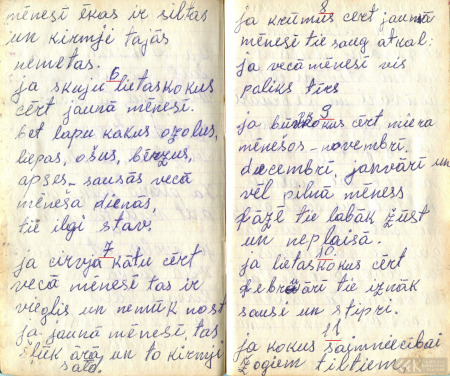 mēnesī ēkas ir siltas
un kirmji tajās
nemetas.
6
ja skuju lietaskokus
cērt jaunā mēnesī.
bet lapu kokus ozolus,
liepas, ošus, bērzus,
apses- sausās vecā
mēneša dienas
tie ilgi stāv.
7
ja cirvja kātu cērt
vecā mēnesī tas ir
vieglis un nemūk nost
ja jaunā mēnesī, tas
mūk ārā un to kirmji
saēd.
8
ja krūmus cērt jaunā
mēnesī tie saug atkal:
ja vecā mēnesī vis
paliks tīrs
9
ja būvkokus cērt miera
mēnešos - novembrī.
decembrī, janvārī un
vēl pilnā mēness
fāzē tie labāk žūst
un neplaisā.
10
ja lietaskokus cērt
februārī tie iznāk
sausi un stipri.
11
ja kokus saimniecībai
žogiem tiltiem